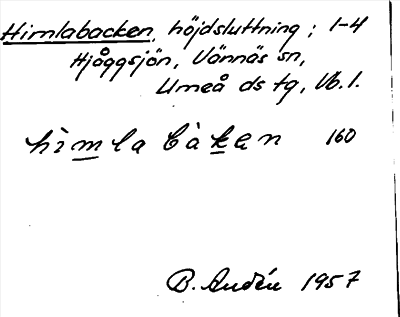 Himlabacken, höjdsluttning; 1-4
Hjåggsjön, Vännäs sn,
Umeå ds tg, Vb. l.
hìmla bàkan 160
B. Andén 1957